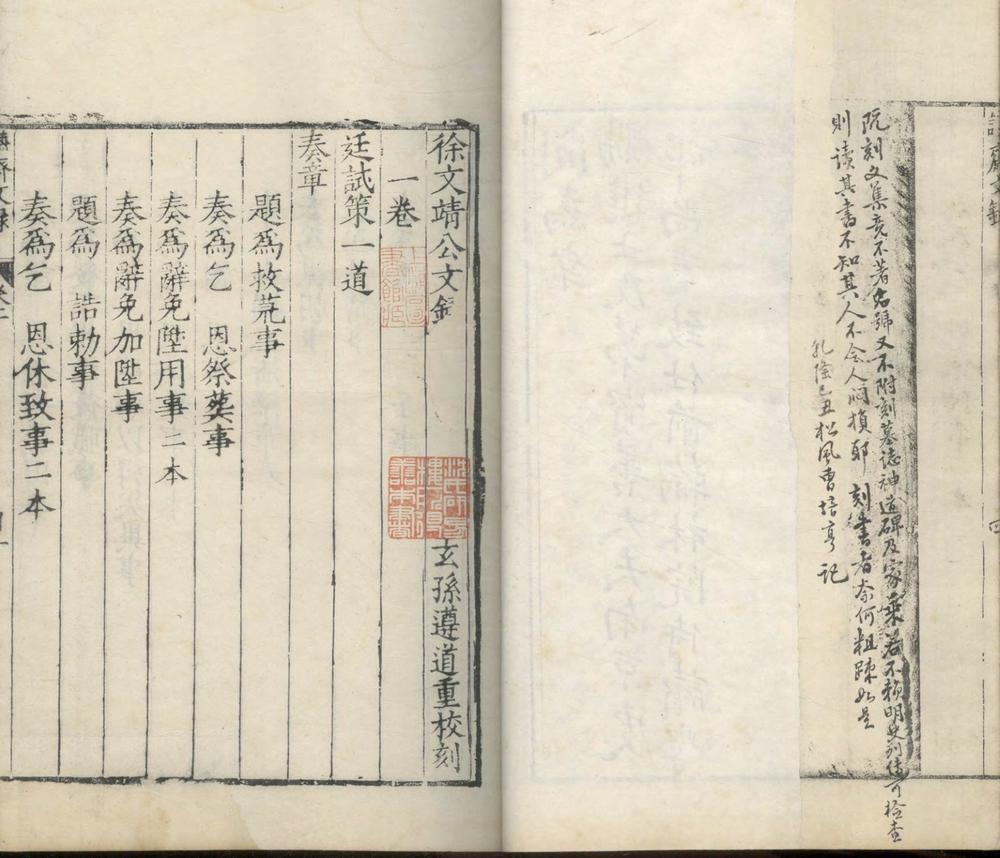 既刻文集竟不著名號又不附刻墓誌神道碑及家乘若不賴明史列傳可檢查
則讀其書不知其人不令人悶損耶 刻書者奈何粗疎如是
乾隆己丑松風曹培亨記
徐文靖公文錄
玄孫遵道重校刻
一卷
廷試策一道
奏章
題為救荒事
奏為乞 恩祭葬事
奏為辭免陞用事二本
奏為辭免加陞事
題為 誥勅事
奏為乞 恩休致事二本